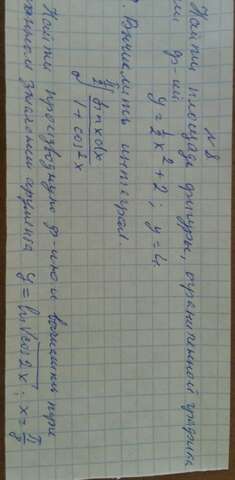 № 8
Найти площадь фигуры, ограниченной графика
ми ф-ций
y = ½x² + 2 ; y = 4
Вычислить интеграл
∫ sin x dx / 1 + cos² x
Найти производную ф-ции и вычислить при
данном значении аргумента y = ln √cos 2x ; x = π/8